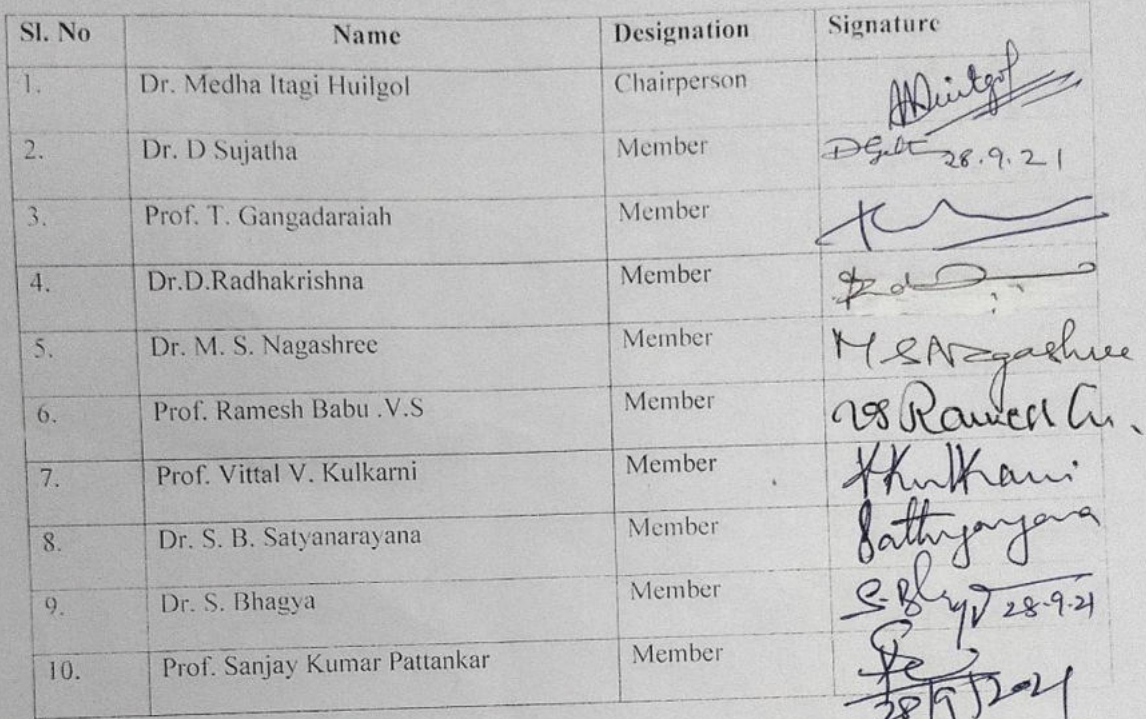 Sl. No Name Designation Signature
1. Dr. Medha Itagi Huilgol Chairperson
2. Dr. D Sujatha Member 28.9.21
3. Prof. T. Gangadaraiah Member
4. Dr.D.Radhakrishna Member
5. Dr. M. S. Nagashree Member M S Nagashree
6. Prof. Ramesh Babu .V.S Member
7. Prof. Vittal V. Kulkarni Member VKulkarni
8. Dr. S. B. Satyanarayana Member
9. Dr. S. Bhagya Member 28.9.21
10. Prof. Sanjay Kumar Pattankar Member
28/9/2021